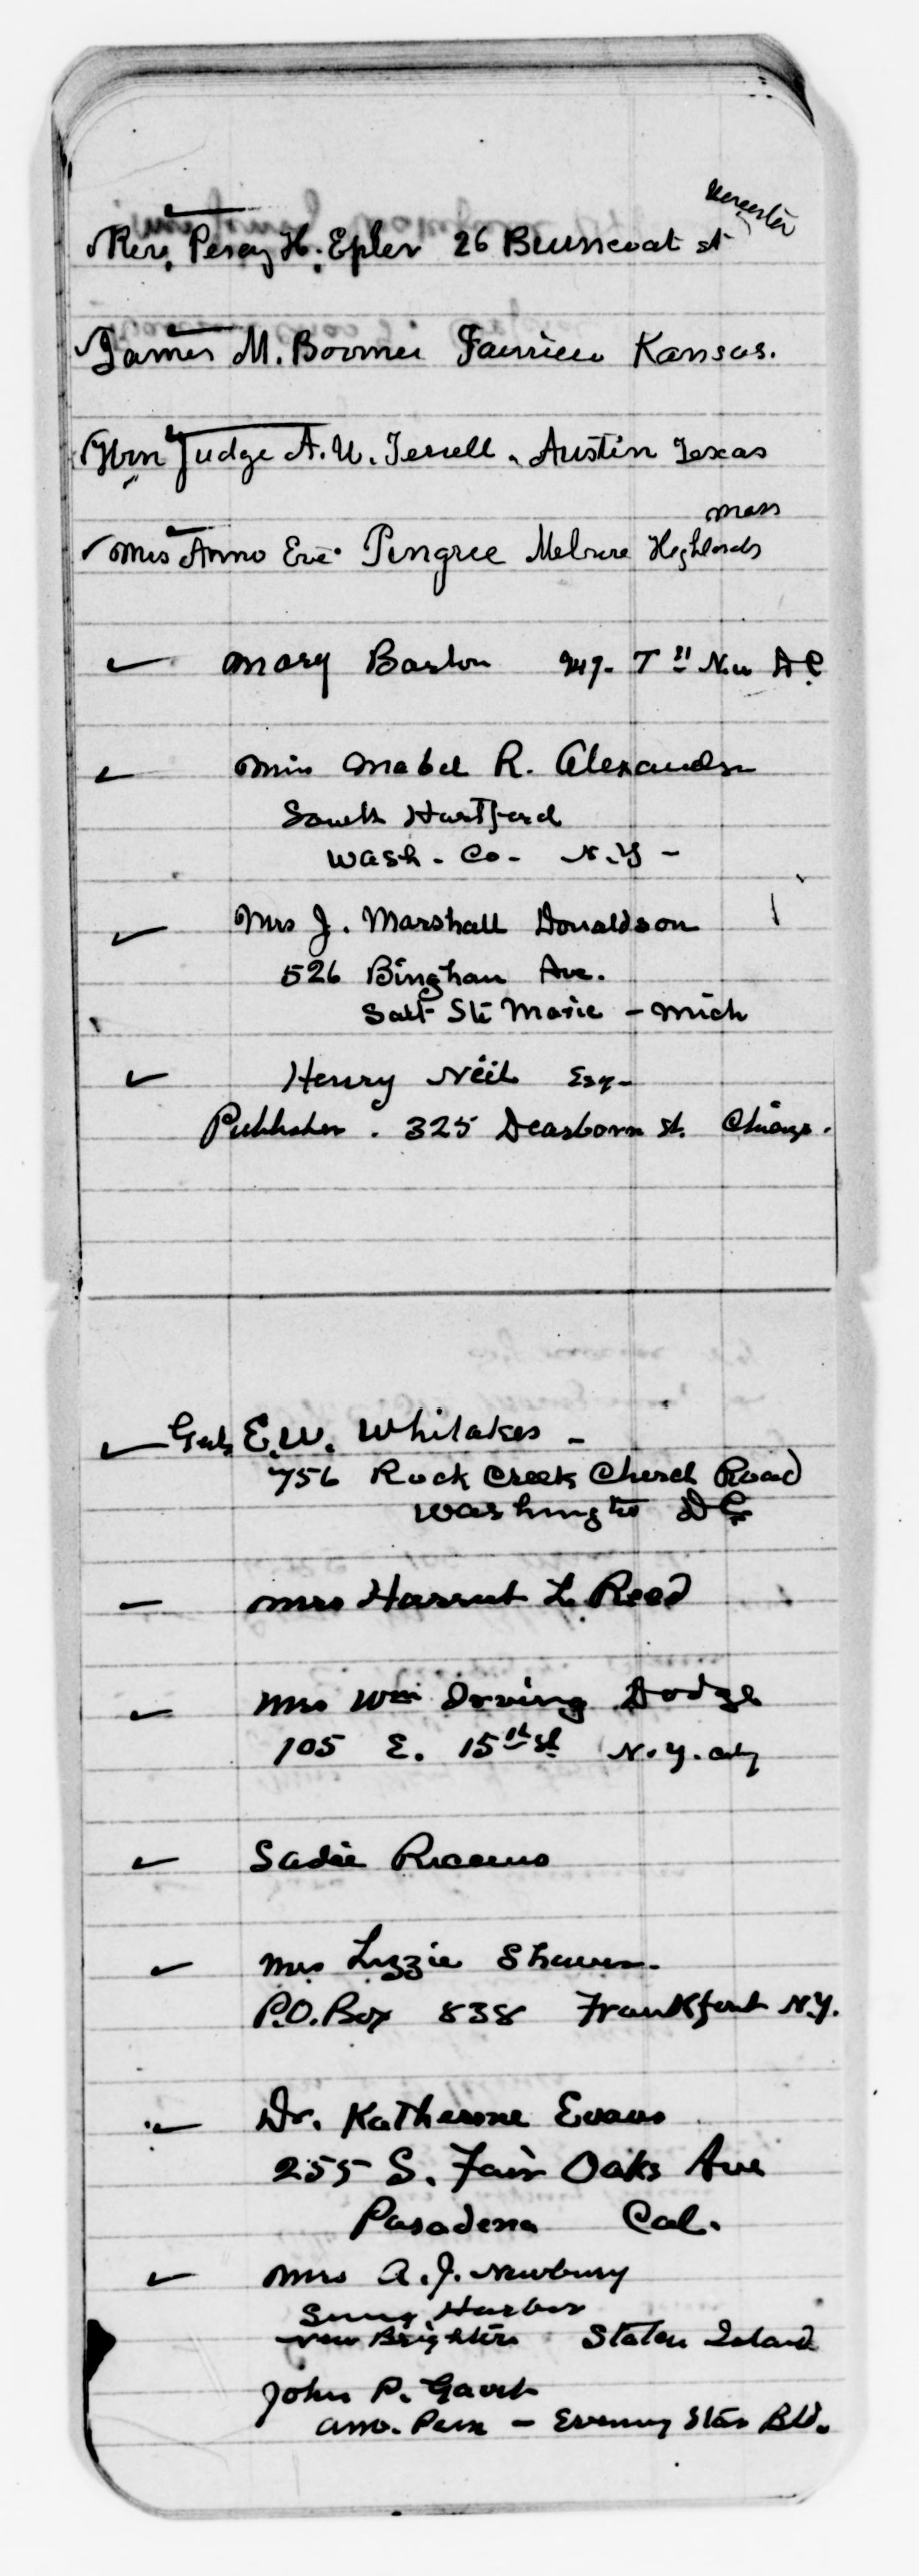 Rev. Percy H. Epler 26 Burncoat st Worcester
James M. Boomer Fairview Kansas.
Hon Judge A. W. Terrell. Austin Texas
Mass
Mrs Anno Eve Pingree Melrose Highlands
Mary Barton 947. T st N.w D.C
Miss Mabel R. Alexander
South Hartford
Wash - Co - N.Y -
Mrs J. Marshall Donaldson
526 Bingham Ave.
Salt Ste Marie - Mich
Henry Neil Esq -
Publisher . 325 Dearborn st. Chicago.
E.W. Whitaker -
756 Rock Creek Church Road
Washington DC
Mrs Harriet L. Reed
Mrs Wm Irving Dodge
105 E. 15th st N.Y. city
Sadie
Mrs Lizzie Shaver.
P.O. Box 838 Frankfort N.Y.
Dr. Katherine Evans
255 S. Fair Oaks Ave
Pasadena Cal.
Mrs A. J. Newbury
Snug Harbor
New Brighton Staten Island
John P. Gavit
Asso. Press - Evening Star Bld.